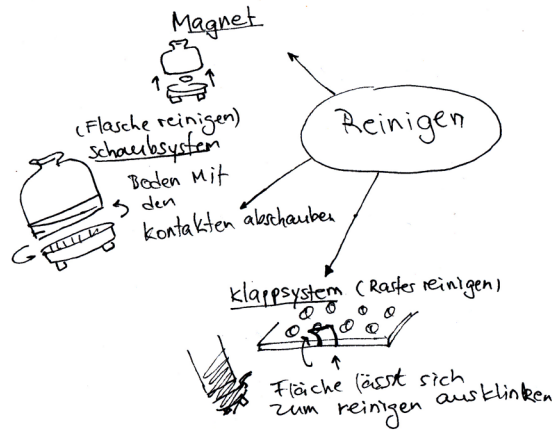 Magnet
Reinigen
(Flasche reinigen)
schaubsystem
Boden Mit
den
Kontakten abschauben
Klappsystem (Raster reinigen)
Fläche lässt sich
zum reinigen ausklinken